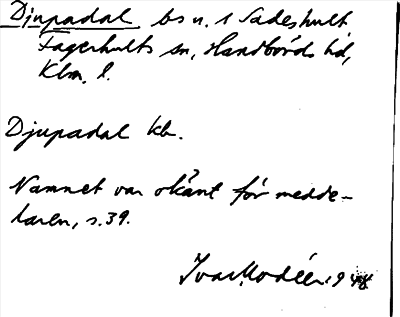 Djupadal bs u. 1 Sadeshult
Fagerhults sn, Handbörds hd,
Klm. l.
Djupadal kb.
Namnet var okänt för medde-
laren, s. 39.
Ivar Modéer 1948